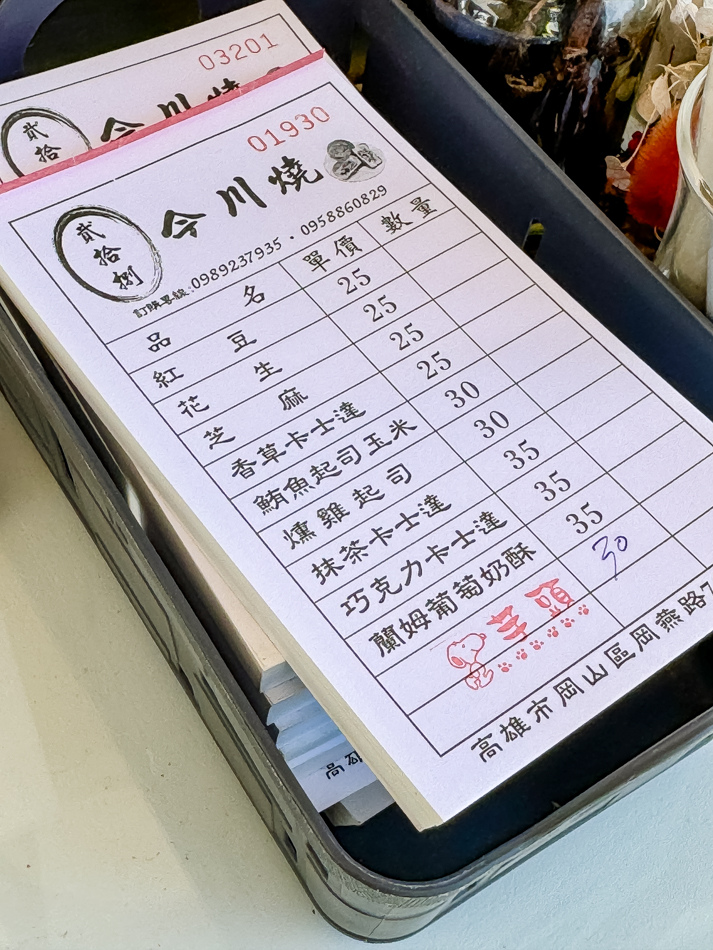 03201
貳拾
今川燒
01930
貳拾捌
今川燒
訂購專線:0989237935 · 0958860829
品名 單價 數量
紅豆 25
花生 25
芝麻 25
香草卡士達 25
鮪魚起司玉米 30
燻雞起司 30
抹茶卡士達 35
巧克力卡士達 35
蘭姆葡萄奶酥 35
芋頭 30
高雄市岡山區岡燕路7
高雄